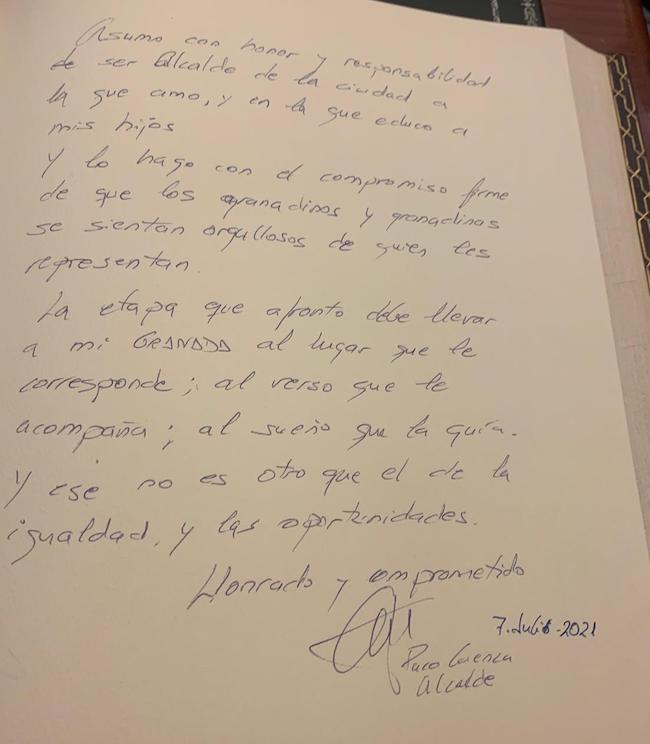 Asumo con honor y responsabilidad
de ser Alcalde de la ciudad a
la que amo, y en la que educo a
mis hijos
Y lo hago con el compromiso firme
de que los granadinos y granadinas
se sientan orgullosos de quien les
representan.
La etapa que afronto debe llevar
a mi GRANADA al lugar que le
corresponde; al verso que le
acompaña; al sueño que la guía.
Y ese no es otro que el de la
igualdad, y las oportunidades.
Honrado y comprometido
7. Julio - 2021
Paco Cuenca
Alcalde